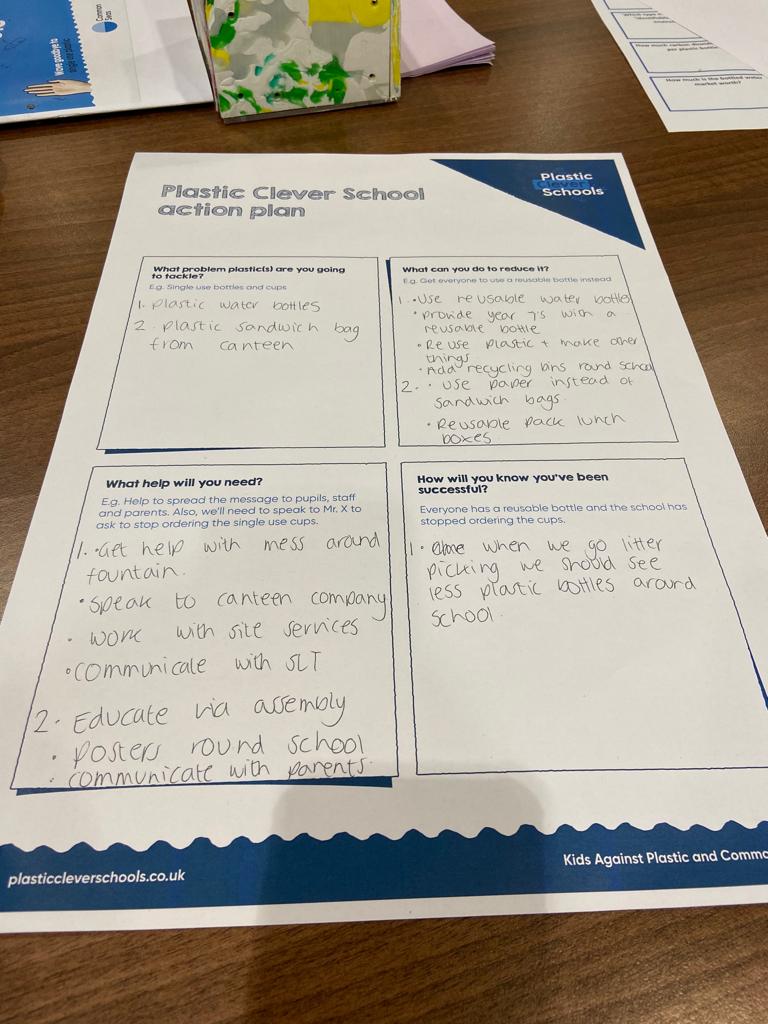 Common
Seas
Wave goodbye to
single use plastic
How much carbon dioxide
per plastic bottle
How much is the bottled water
market worth?
Plastic Clever School
action plan
Plastic
Clever
Schools
What problem plastic(s) are you going
to tackle?
E.g. Single use bottles and cups
1. Plastic water bottles
2. plastic sandwich bag
from canteen
What can you do to reduce it?
E.g. Get everyone to use a reusable bottle instead
1. • Use reusable water bottles
• provide year 7's with a
reusable bottle
• Reuse plastic + make other
things
• Add recycling bins round school
2. • use paper instead of
sandwich bags.
• Reusable pack lunch
boxes
What help will you need?
E.g. Help to spread the message to pupils, staff
and parents. Also, we'll need to speak to Mr. X to
ask to stop ordering the single use cups.
1. • Get help with mess around
fountain.
• speak to canteen company
• work with site services
• communicate with SLT
2. Educate via assembly
• posters round school
• communicate with parents.
How will you know you've been
successful?
Everyone has a reusable bottle and the school has
stopped ordering the cups.
1. when we go litter
picking we should see
less plastic bottles around
school.
plasticcleverschools.co.uk
Kids Against Plastic and Commo